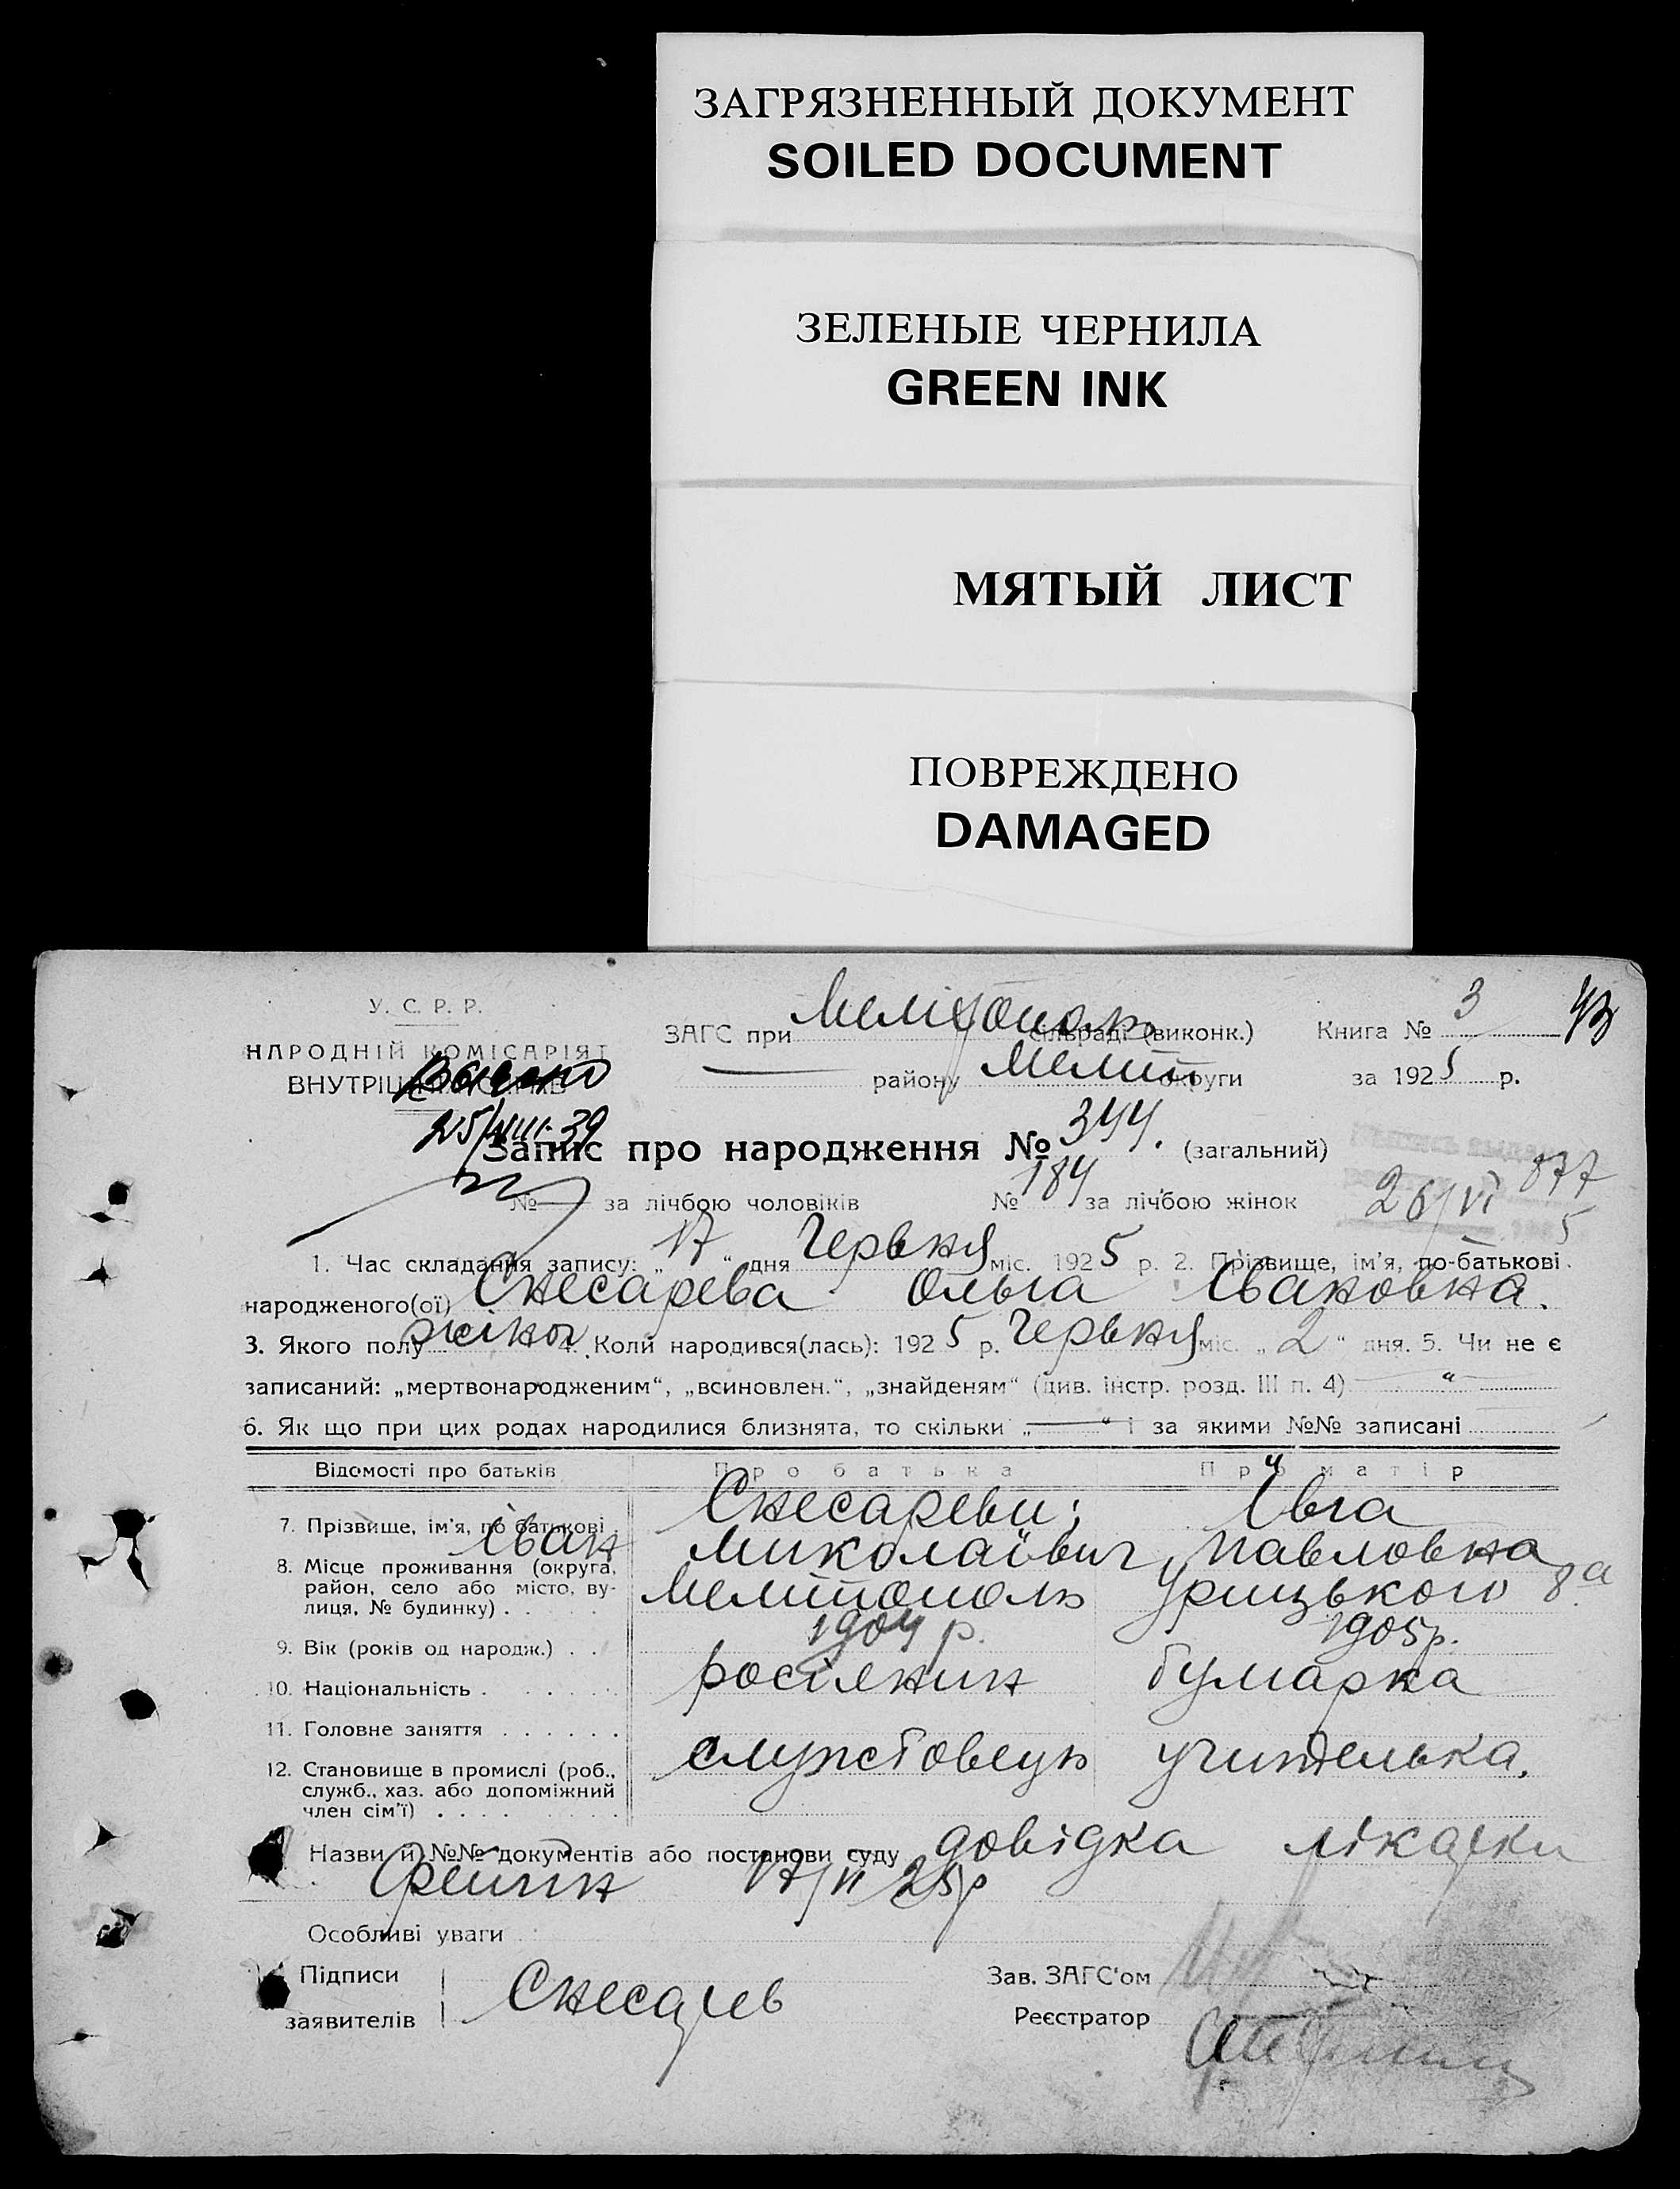 ЗАГРЯЗНЕННЫЙ ДОКУМЕНТ
SOILED DOCUMENT
ЗЕЛЕНЫЕ ЧЕРНИЛА
GREEN INK
МЯТЫЙ ЛИСТ
ПОВРЕЖДЕНО
DAMAGED
У. С. Р. Р.
НАРОДНІЙ КОМІСАРІЯТ
ЗАГС при Мелітополь сільраді (виконк.) Книга № 3
району Меліт округи за 1925 р.
25/VIII-39
Запис про народження № 344. (загальний)
№ — за лічбою чоловіків № 184 за лічбою жінок 26/VI 877
5
1. Час складання запису: „17“ дня Червня міс. 1925 р. 2. Прізвище, ім'я, по-батькові
народженого(ої) Снесарева Ольга Івановна.
3. Якого полу жіноч 4. Коли народився(лась): 1925 р. Червня міс. „2“ дня. 5. Чи не є
записаний: „мертвонародженим“, „всиновлен.“, „знайденям“ (див. інстр. розд. III п. 4) — “
6. Як що при цих родах народилися близнята, то скільки „—“ і за якими №№ записані
Відомості про батьків Про батька Про матір
7. Прізвище, ім'я, по батькові Снесареви: Івга
Іван Миколаївич Павловна
8. Місце проживання (округа, район, село або місто, вулиця, № будинку) . Мелітополь Урицького 8а
9. Вік (років од народж.) . . 1904 р. 1905 р.
10. Національність . росіянин
11. Головне заняття . . . . . .
12. Становище в промислі (роб., служб., хаз. або допоміжний член сім'ї) . . . . службовець учителька.
Назви й №№ документів або постанови суду довідка лікарки
17/VI 25р
Особливі уваги
Підписи
заявителів Снесарев
Зав. ЗАГС'ом
Реєстратор